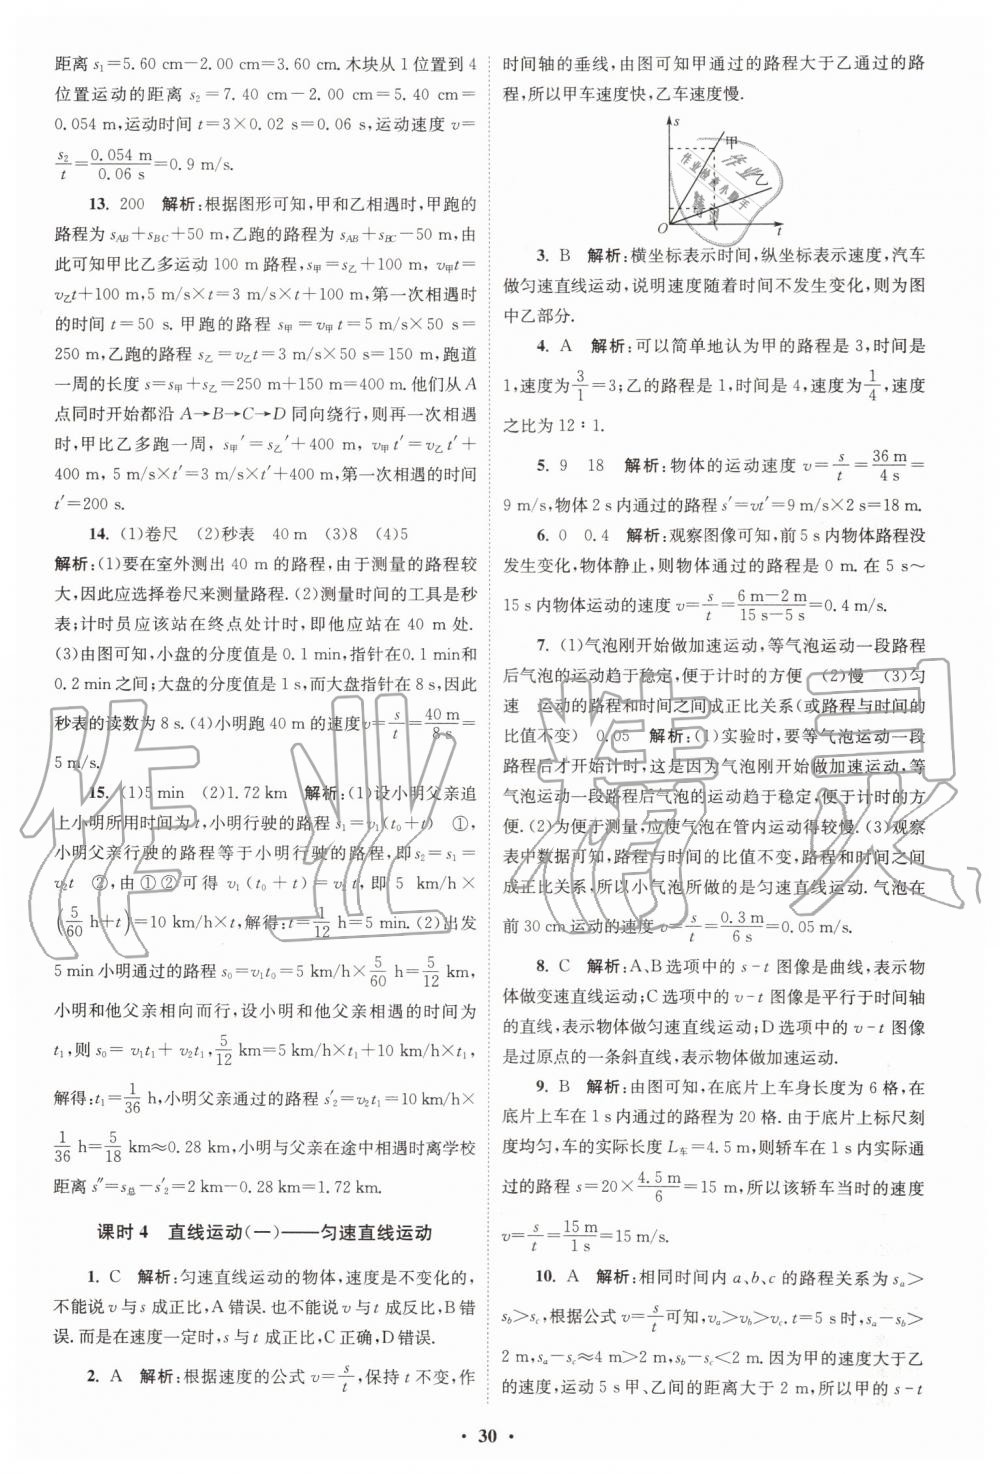 距离 s₁=5.60 cm−2.00 cm=3.60 cm. 木块从1位置到4
位置运动的距离 s₂=7.40 cm−2.00 cm=5.40 cm=
0.054 m,运动时间 t=3×0.02 s=0.06 s,运动速度 v=
s₂/t=0.054 m/0.06 s=0.9 m/s.
13. 200 解析:根据图形可知,甲和乙相遇时,甲跑的
路程为 sAB+sBC+50 m,乙跑的路程为 sAB+sBC−50 m,由
此可知甲比乙多运动 100 m 路程,s甲=s乙+100 m,v甲t=
v乙t+100 m,5 m/s×t=3 m/s×t+100 m,第一次相遇时
的时间 t=50 s. 甲跑的路程 s甲=v甲t=5 m/s×50 s=
250 m,乙跑的路程 s乙=v乙t=3 m/s×50 s=150 m,跑道
一周的长度 s=s甲+s乙=250 m+150 m=400 m. 他们从A
点同时开始都沿 A→B→C→D 同向绕行,则再一次相遇
时,甲比乙多跑一周,s甲′=s乙′+400 m,v甲t′=v乙t′+
400 m,5 m/s×t′=3 m/s×t′+400 m,第一次相遇的时间
t′=200 s.
14. (1)卷尺 (2)秒表 40 m (3)8 (4)5
解析:(1)要在室外测出 40 m 的路程,由于测量的路程较
大,因此应选择卷尺来测量路程.(2)测量时间的工具是秒
表;计时员应该站在终点处计时,即他应站在 40 m 处.
(3)由图可知,小盘的分度值是 0.1 min,指针在0.1 min和
0.2 min之间;大盘的分度值是 1 s,而大盘指针在 8 s,因此
秒表的读数为 8 s.(4)小明跑 40 m 的速度v=s/t=40 m/8 s=
5 m/s.
15. (1)5 min (2)1.72 km 解析:(1)设小明父亲追
上小明所用时间为 t,小明行驶的路程 s₁=v₁(t₀+t) ①,
小明父亲行驶的路程等于小明行驶的路程,即s₂=s₁=
v₂t ②,由①②可得 v₁(t₀+t)=v₂t,即 5 km/h×
(5/60 h+t)=10 km/h×t,解得:t=1/12 h=5 min.(2)出发
5 min小明通过的路程 s₀=v₁t₀=5 km/h×5/60 h=5/12 km,
小明和他父亲相向而行,设小明和他父亲相遇的时间为
t₁,则 s₀=v₁t₁+v₂t₁,5/12 km=5 km/h×t₁+10 km/h×t₁,
解得:t₁=1/36 h,小明父亲通过的路程 s′₂=v₂t₁=10 km/h×
1/36 h=5/18 km≈0.28 km,小明与父亲在途中相遇时离学校
距离 s″=s总−s′₂=2 km−0.28 km=1.72 km.
课时 4 直线运动(一)——匀速直线运动
1. C 解析:匀速直线运动的物体,速度是不变化的,
不能说 v 与 s 成正比,A错误.也不能说 v 与 t 成反比,B错
误.而是在速度一定时,s 与 t 成正比,C正确,D错误.
2. A 解析:根据速度的公式 v=s/t,保持 t 不变,作
时间轴的垂线,由图可知甲通过的路程大于乙通过的路
程,所以甲车速度快,乙车速度慢.
s
甲
乙
O
t
3. B 解析:横坐标表示时间,纵坐标表示速度,汽车
做匀速直线运动,说明速度随着时间不发生变化,则为图
中乙部分.
4. A 解析:可以简单地认为甲的路程是 3,时间是
1,速度为3/1=3;乙的路程是 1,时间是 4,速度为1/4,速度
之比为 12∶1.
5. 9 18 解析:物体的运动速度 v=s/t=36 m/4 s=
9 m/s,物体2 s内通过的路程 s′=vt′=9 m/s×2 s=18 m.
6. 0 0.4 解析:观察图像可知,前5 s内物体路程没
发生变化,物体静止,则物体通过的路程是 0 m.在 5 s~
15 s内物体运动的速度 v=s/t=6 m−2 m/15 s−5 s=0.4 m/s.
7. (1)气泡刚开始做加速运动,等气泡运动一段路程
后气泡的运动趋于稳定,便于计时的方便 (2)慢 (3)匀
速 运动的路程和时间之间成正比关系(或路程与时间的
比值不变) 0.05 解析:(1)实验时,要等气泡运动一段
路程后才开始计时,这是因为气泡刚开始做加速运动,等
气泡运动一段路程后气泡的运动趋于稳定,便于计时的方
便.(2)为便于测量,应使气泡在管内运动得较慢.(3)观察
表中数据可知,路程与时间的比值不变,路程和时间之间
成正比关系,所以小气泡所做的是匀速直线运动.气泡在
前 30 cm运动的速度 v=s/t=0.3 m/6 s=0.05 m/s.
8. C 解析:A、B选项中的 s-t 图像是曲线,表示物
体做变速直线运动;C选项中的 v-t 图像是平行于时间轴
的直线,表示物体做匀速直线运动;D选项中的 v-t 图像
是过原点的一条斜直线,表示物体做加速运动.
9. B 解析:由图可知,在底片上车身长度为 6 格,在
底片上车在 1 s内通过的路程为 20 格.由于底片上标尺刻
度均匀,车的实际长度 L车=4.5 m,则轿车在 1 s 内实际通
过的路程 s=20×4.5 m/6=15 m,所以该轿车当时的速度
v=s/t=15 m/1 s=15 m/s.
10. A 解析:相同时间内 a、b、c 的路程关系为 sa>
sb>sc,根据公式 v=s/t可知,va>vb>vc. t=5 s时,sa−sb>
2 m,sa−sc≈4 m>2 m,sb−sc<2 m.因为甲的速度大于乙
的速度,运动 5 s甲、乙间的距离大于 2 m,所以甲的 s-t
• 30 •
作业精灵
作业
作业检查小助手
精灵